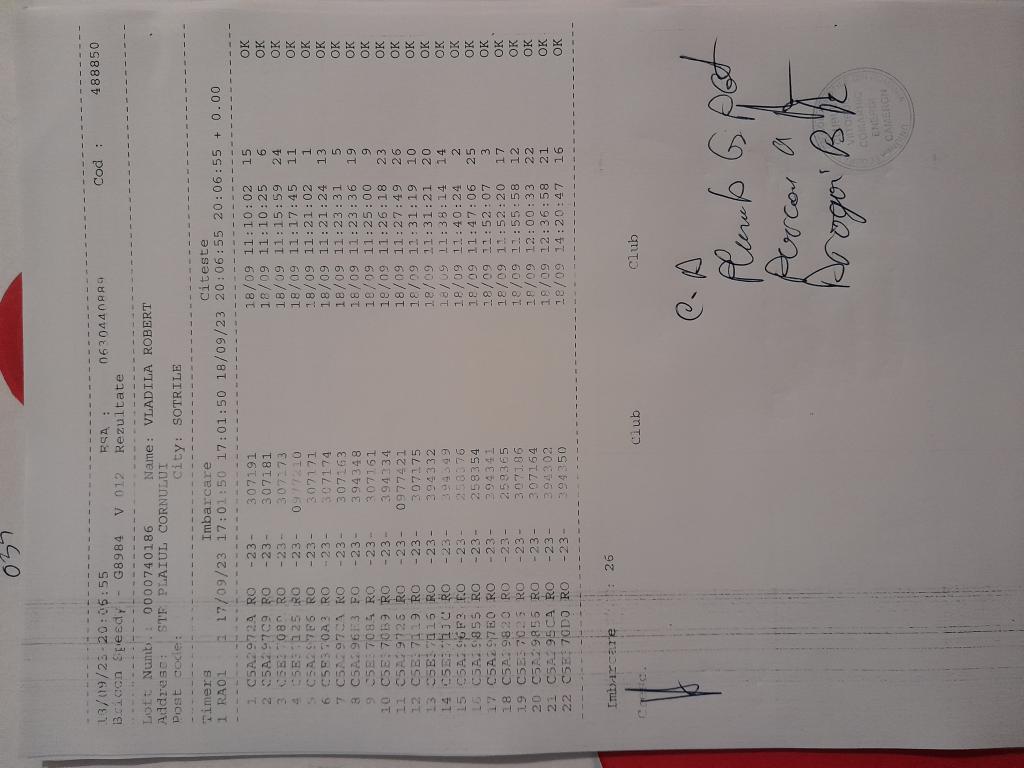 035
18/09/23-20:06:55 ESA : 0630440889 Cod : 488850
Bricon Speedy - G8984 V 012 Rezultate
Loft Numb.: 0000740186 Name: VLADILA ROBERT
Address: STR PLAIUL CORNULUI
Post code: City: SOTRILE
Timers Imbarcare Citeste
1 RA01 1 17/09/23 17:01:50 17:01:50 18/09/23 20:06:55 20:06:55 + 0.00
1 C5A2972A RO -23- 307191 18/09 11:10:02 15 OK
2 C5A297C9 RO -23- 307181 18/09 11:10:25 6 OK
3 RO -23- 307173 18/09 11:15:59 24 OK
4 C5E37125 RO -23- 0977210 18/09 11:17:45 11 OK
5 C5A297F6 RO -23- 307171 18/09 11:21:02 1 OK
6 C5E370A3 RO -23- 307174 18/09 11:21:24 13 OK
7 C5A297CA RO -23- 307163 18/09 11:23:31 5 OK
8 C5A296E3 RO -23- 394348 18/09 11:23:36 19 OK
9 C5E3708A RO -23- 307161 18/09 11:25:00 9 OK
10 C5E370B9 RO -23- 394334 18/09 11:26:18 23 OK
11 C5A29726 RO -23- 0977421 18/09 11:27:49 26 OK
12 C5E37119 RO -23- 307175 18/09 11:31:19 10 OK
13 C5E37116 RO -23- 394332 18/09 11:31:21 20 OK
14 C5E3711C RO -23- 394349 18/09 11:38:14 14 OK
15 C5A296F3 RO -23- 258376 18/09 11:40:24 2 OK
16 C5A29855 RO -23- 258354 18/09 11:47:06 25 OK
17 C5A297E0 RO -23- 394341 18/09 11:52:07 3 OK
18 C5A29820 RO -23- 258365 18/09 11:52:20 17 OK
19 C5E37025 RO -23- 307186 18/09 11:55:58 12 OK
20 C5A29856 RO -23- 307164 18/09 12:00:33 22 OK
21 C5A295CA RO -23- 394302 18/09 12:36:58 21 OK
22 C5E370D0 RO -23- 394350 18/09 14:20:47 16 OK
Imbarcare : 26
Club Club
C. A